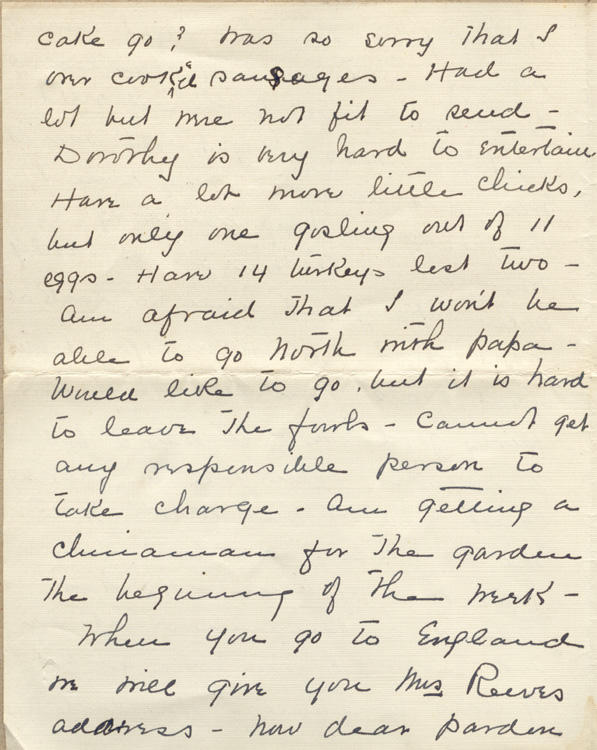 cake go? Was so sorry that I
over cook'd sausages - Had a
lot but were not fit to send -
Dorothy is very hard to entertain
Have a lot more little chicks,
but only one gosling out of 11
eggs - Have 14 turkeys lost two -
Am afraid that I won't be
able to go North with papa -
Would like to go, but it is hard
to leave the fowls - Cannot get
any responsible person to
take charge - Am getting a
chinaman for the garden
the beginning of the week -
When you go to England
we will give you Mrs Reeves
address - Now dear pardon